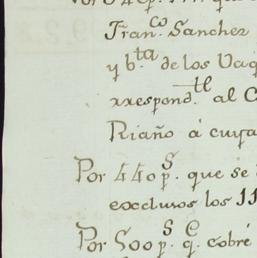 Por
Fran.co Sanchez
y b.ta de los Vaq
rrespond.te al C
Riaño á cuya
Por 440 p.s que se
exclusos los 11
Por 500 p.s q.e cobré